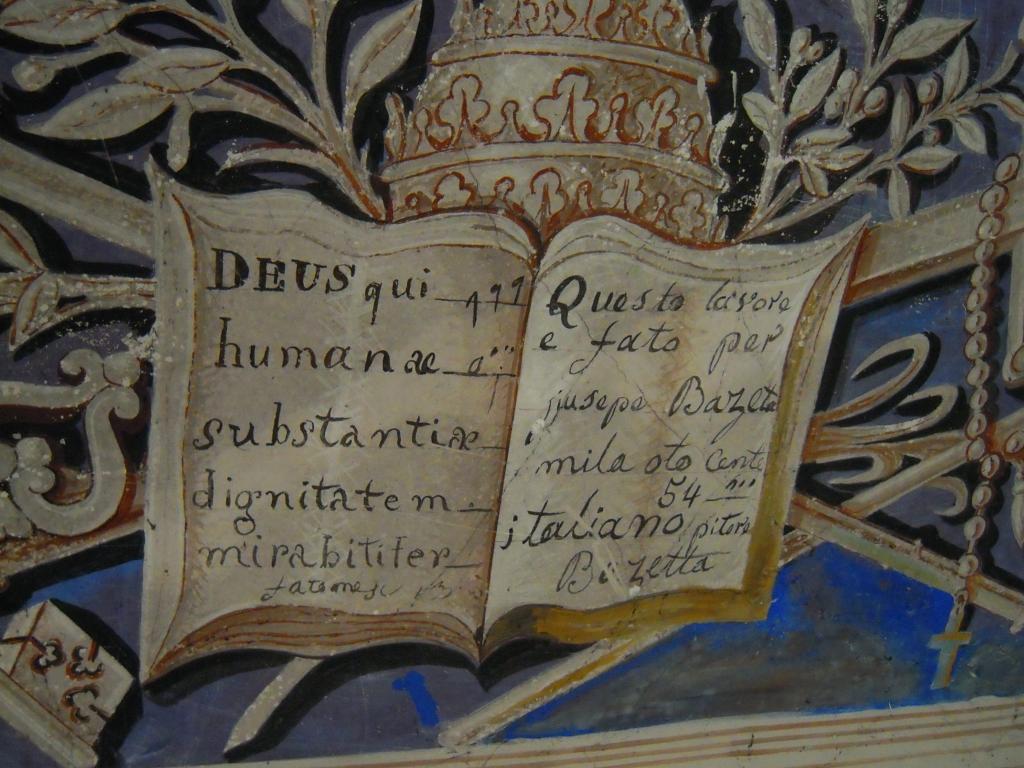 DEUS qui
humanæ
substantiæ
dignitatem
mirabititer
fatomesi
Questo lavore
e fato per
jiusepe Bazeta
mila oto cente
54
italiano pitore
Bozetta